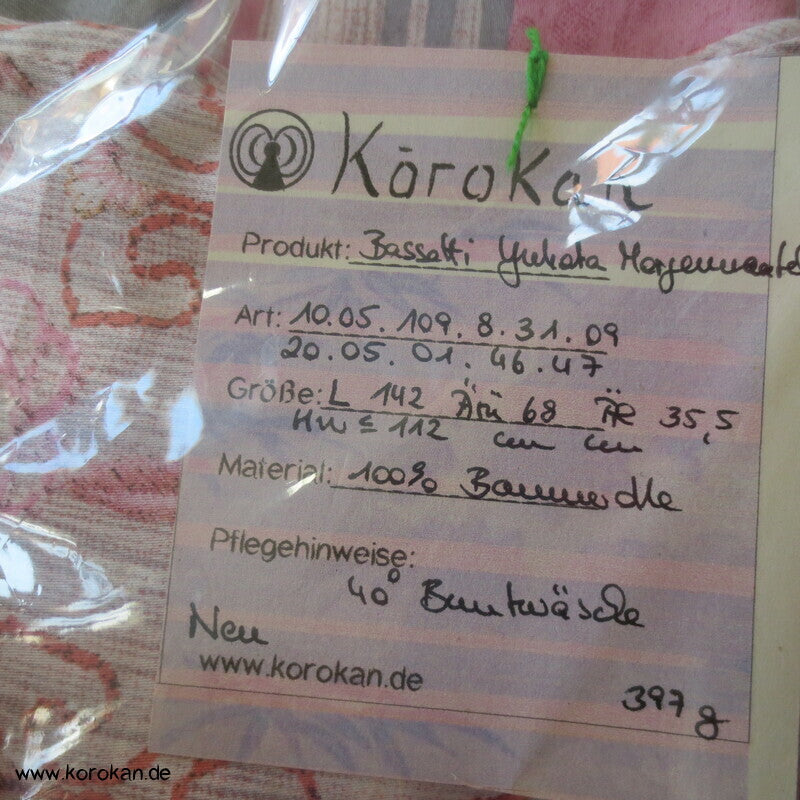 Kōrokan
Produkt: Bassetti Yukata Morgenmantel
Art: 10.05.109.8.31.09
20.05.01.46.47
Größe: L 142 Ärü 68 ÄR 35,5
HW ≤ 112 cm cm
Material: 100% Baumwolle
Pflegehinweise:
40° Buntwäsche
Neu
www.korokan.de
397 g
www.korokan.de